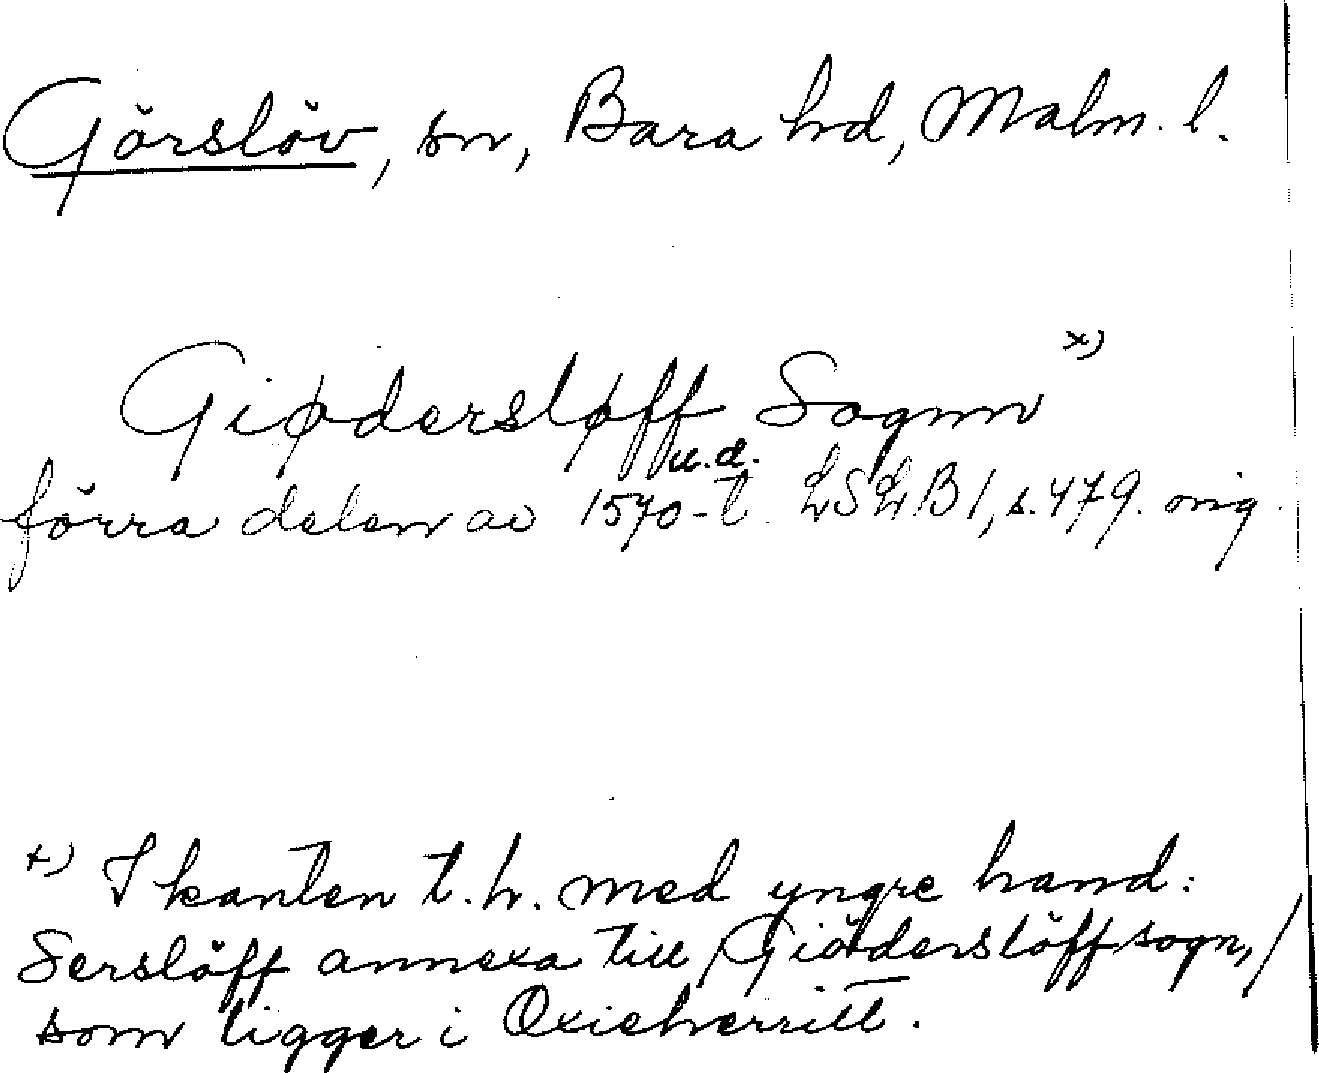 Görslöv, sn, Bara hd, Malm. l.
Giødersløff Sognn x)
u.d.
förra delen av 1570-t. LSLB 1, s. 479. orig.
x) I kanten t.h. med yngre hand:
Serslöff annexa till /Giöderslöff sogn,/
som ligger i Oxieherritt.